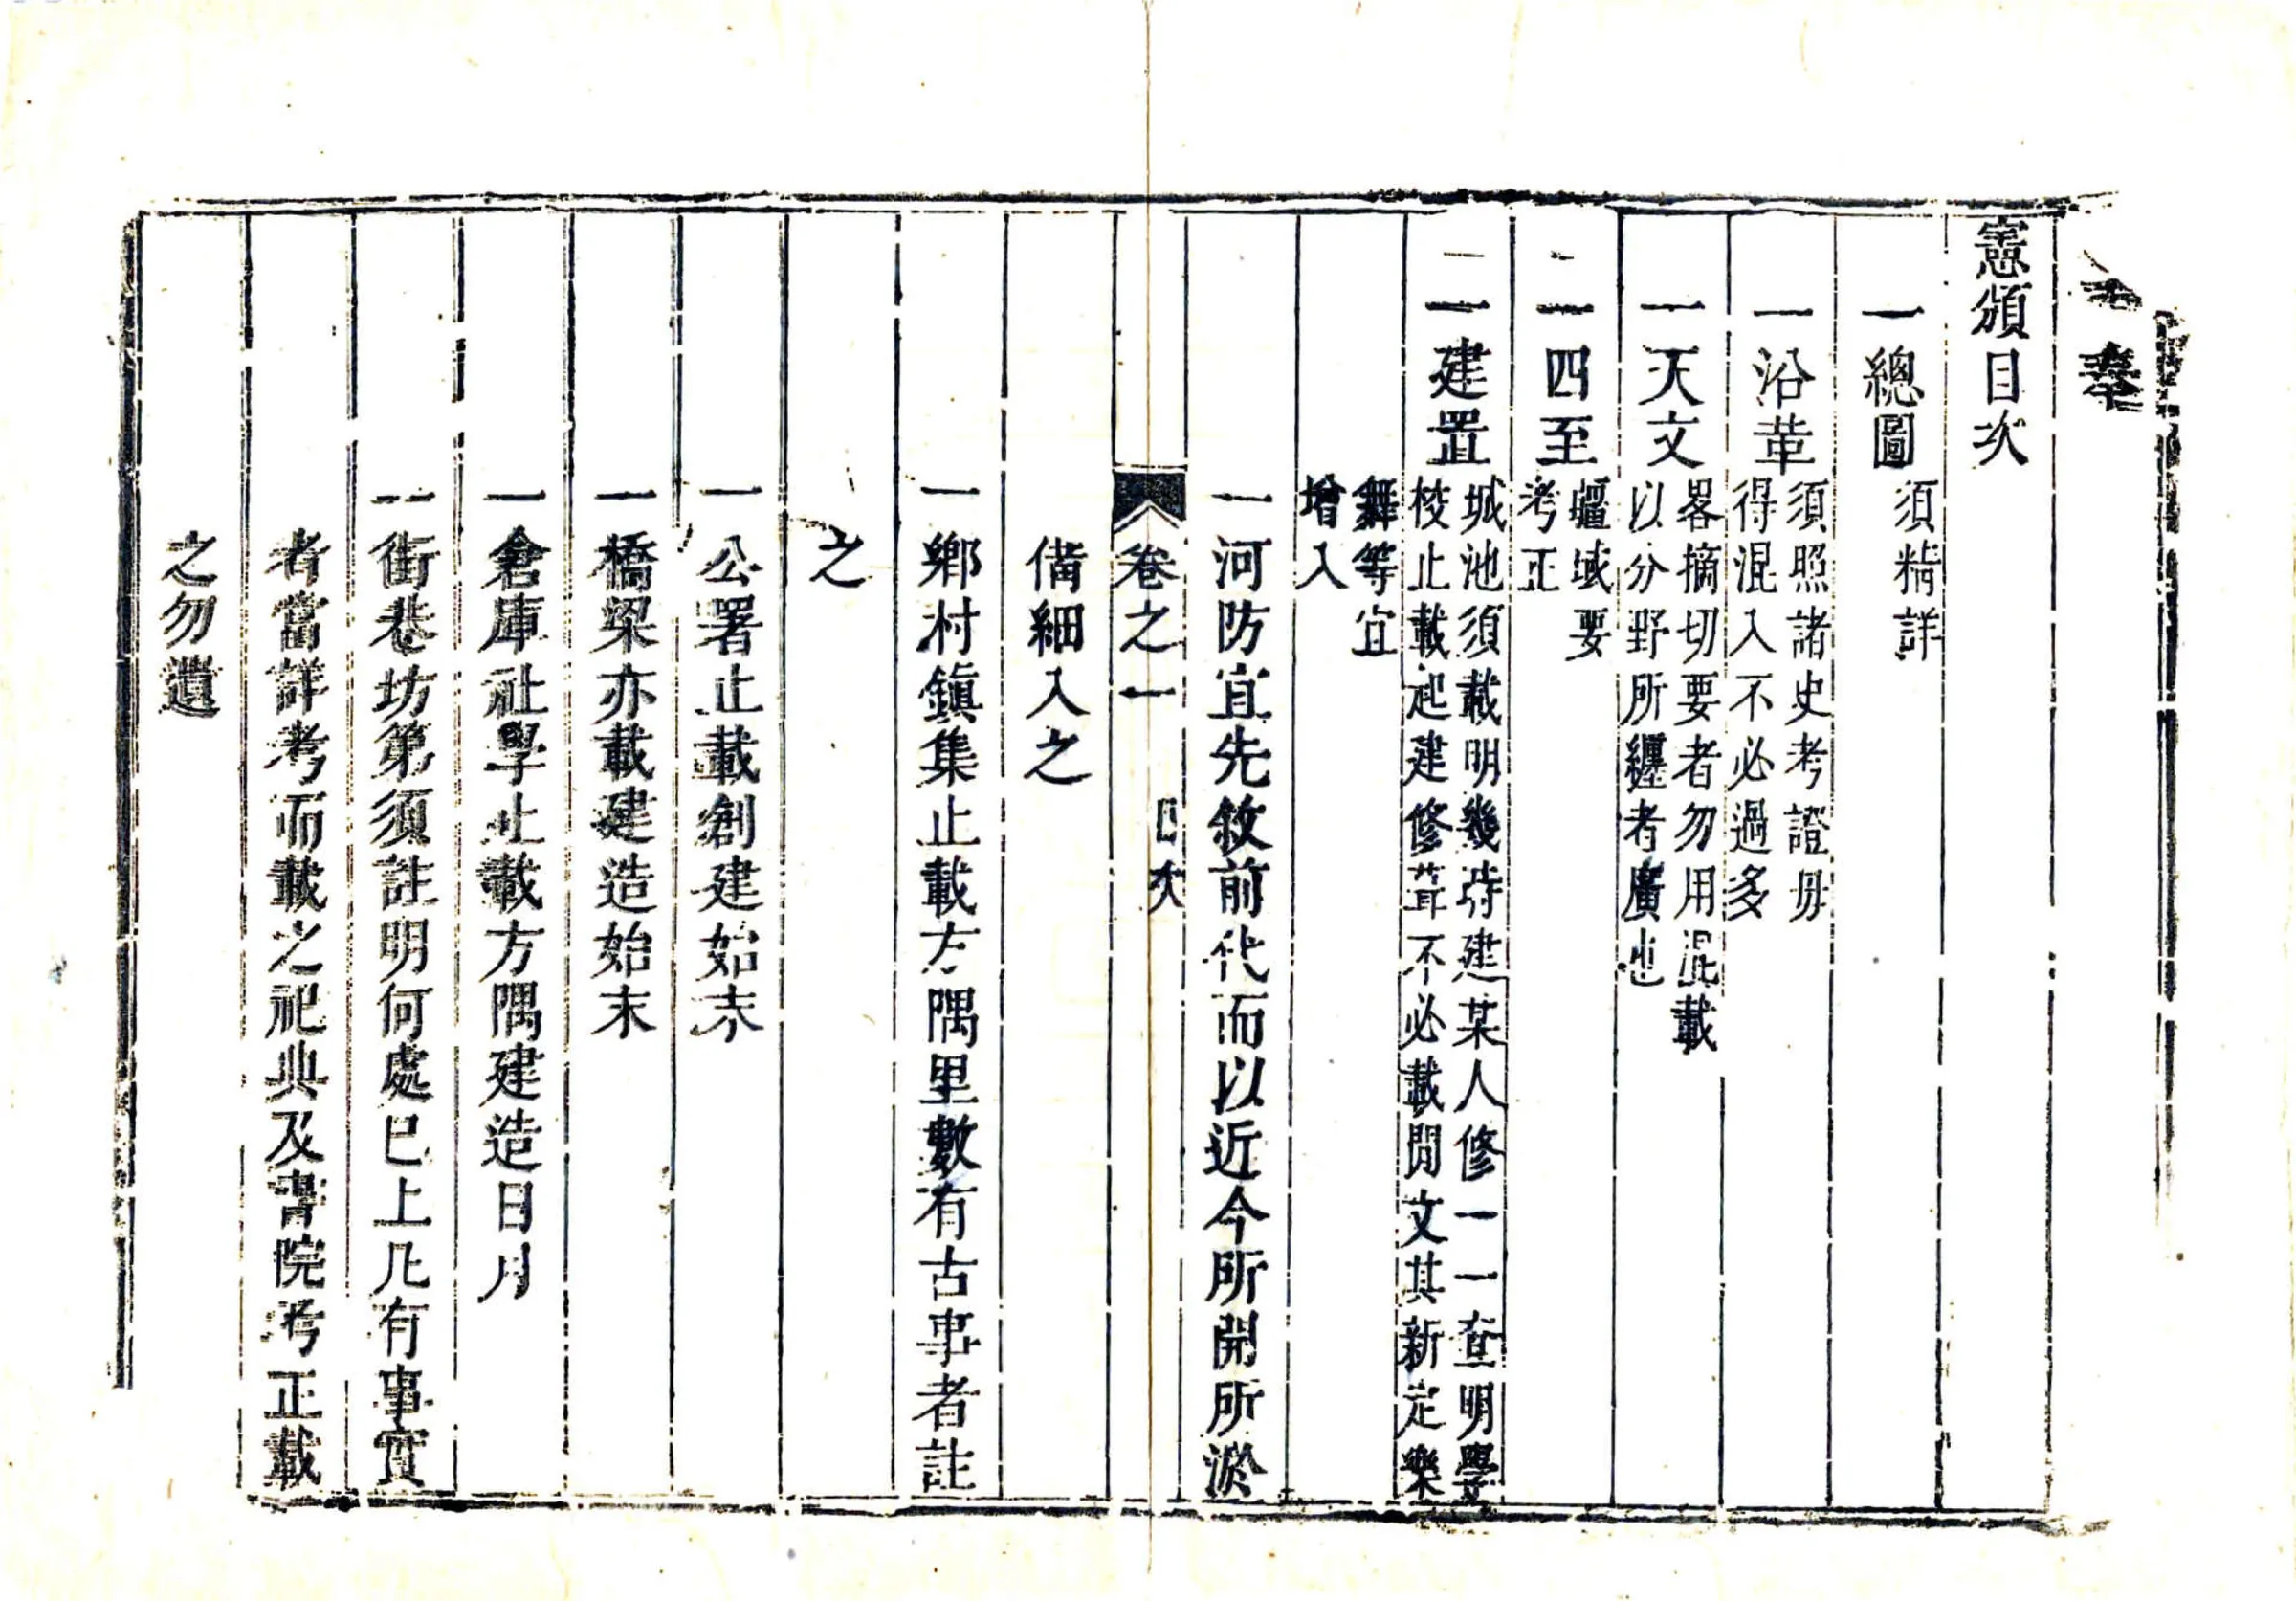 奉
憲頒目次
一總圖須精詳
一沿革須照諸史考證毋
得混入不必過多
一天文畧摘切要者勿用混載
以分野所纏者廣也
一四至疆域要
考正
一建置城池須載明幾時建某人修一一查明學
校止載起建修葺不必載閒文其新定樂
舞等宜
增入
一河防宜先敘前代而以近今所開所淤
卷之一 目次
備細入之
一鄉村鎮集止載方隅里數有古事者註
之
一公署止載創建始末
一橋梁亦載建造始末
一倉庫社學止載方隅建造日月
一街巷坊第須註明何處已上凡有事實
者當詳考而載之祀典及書院考正載
之勿遺